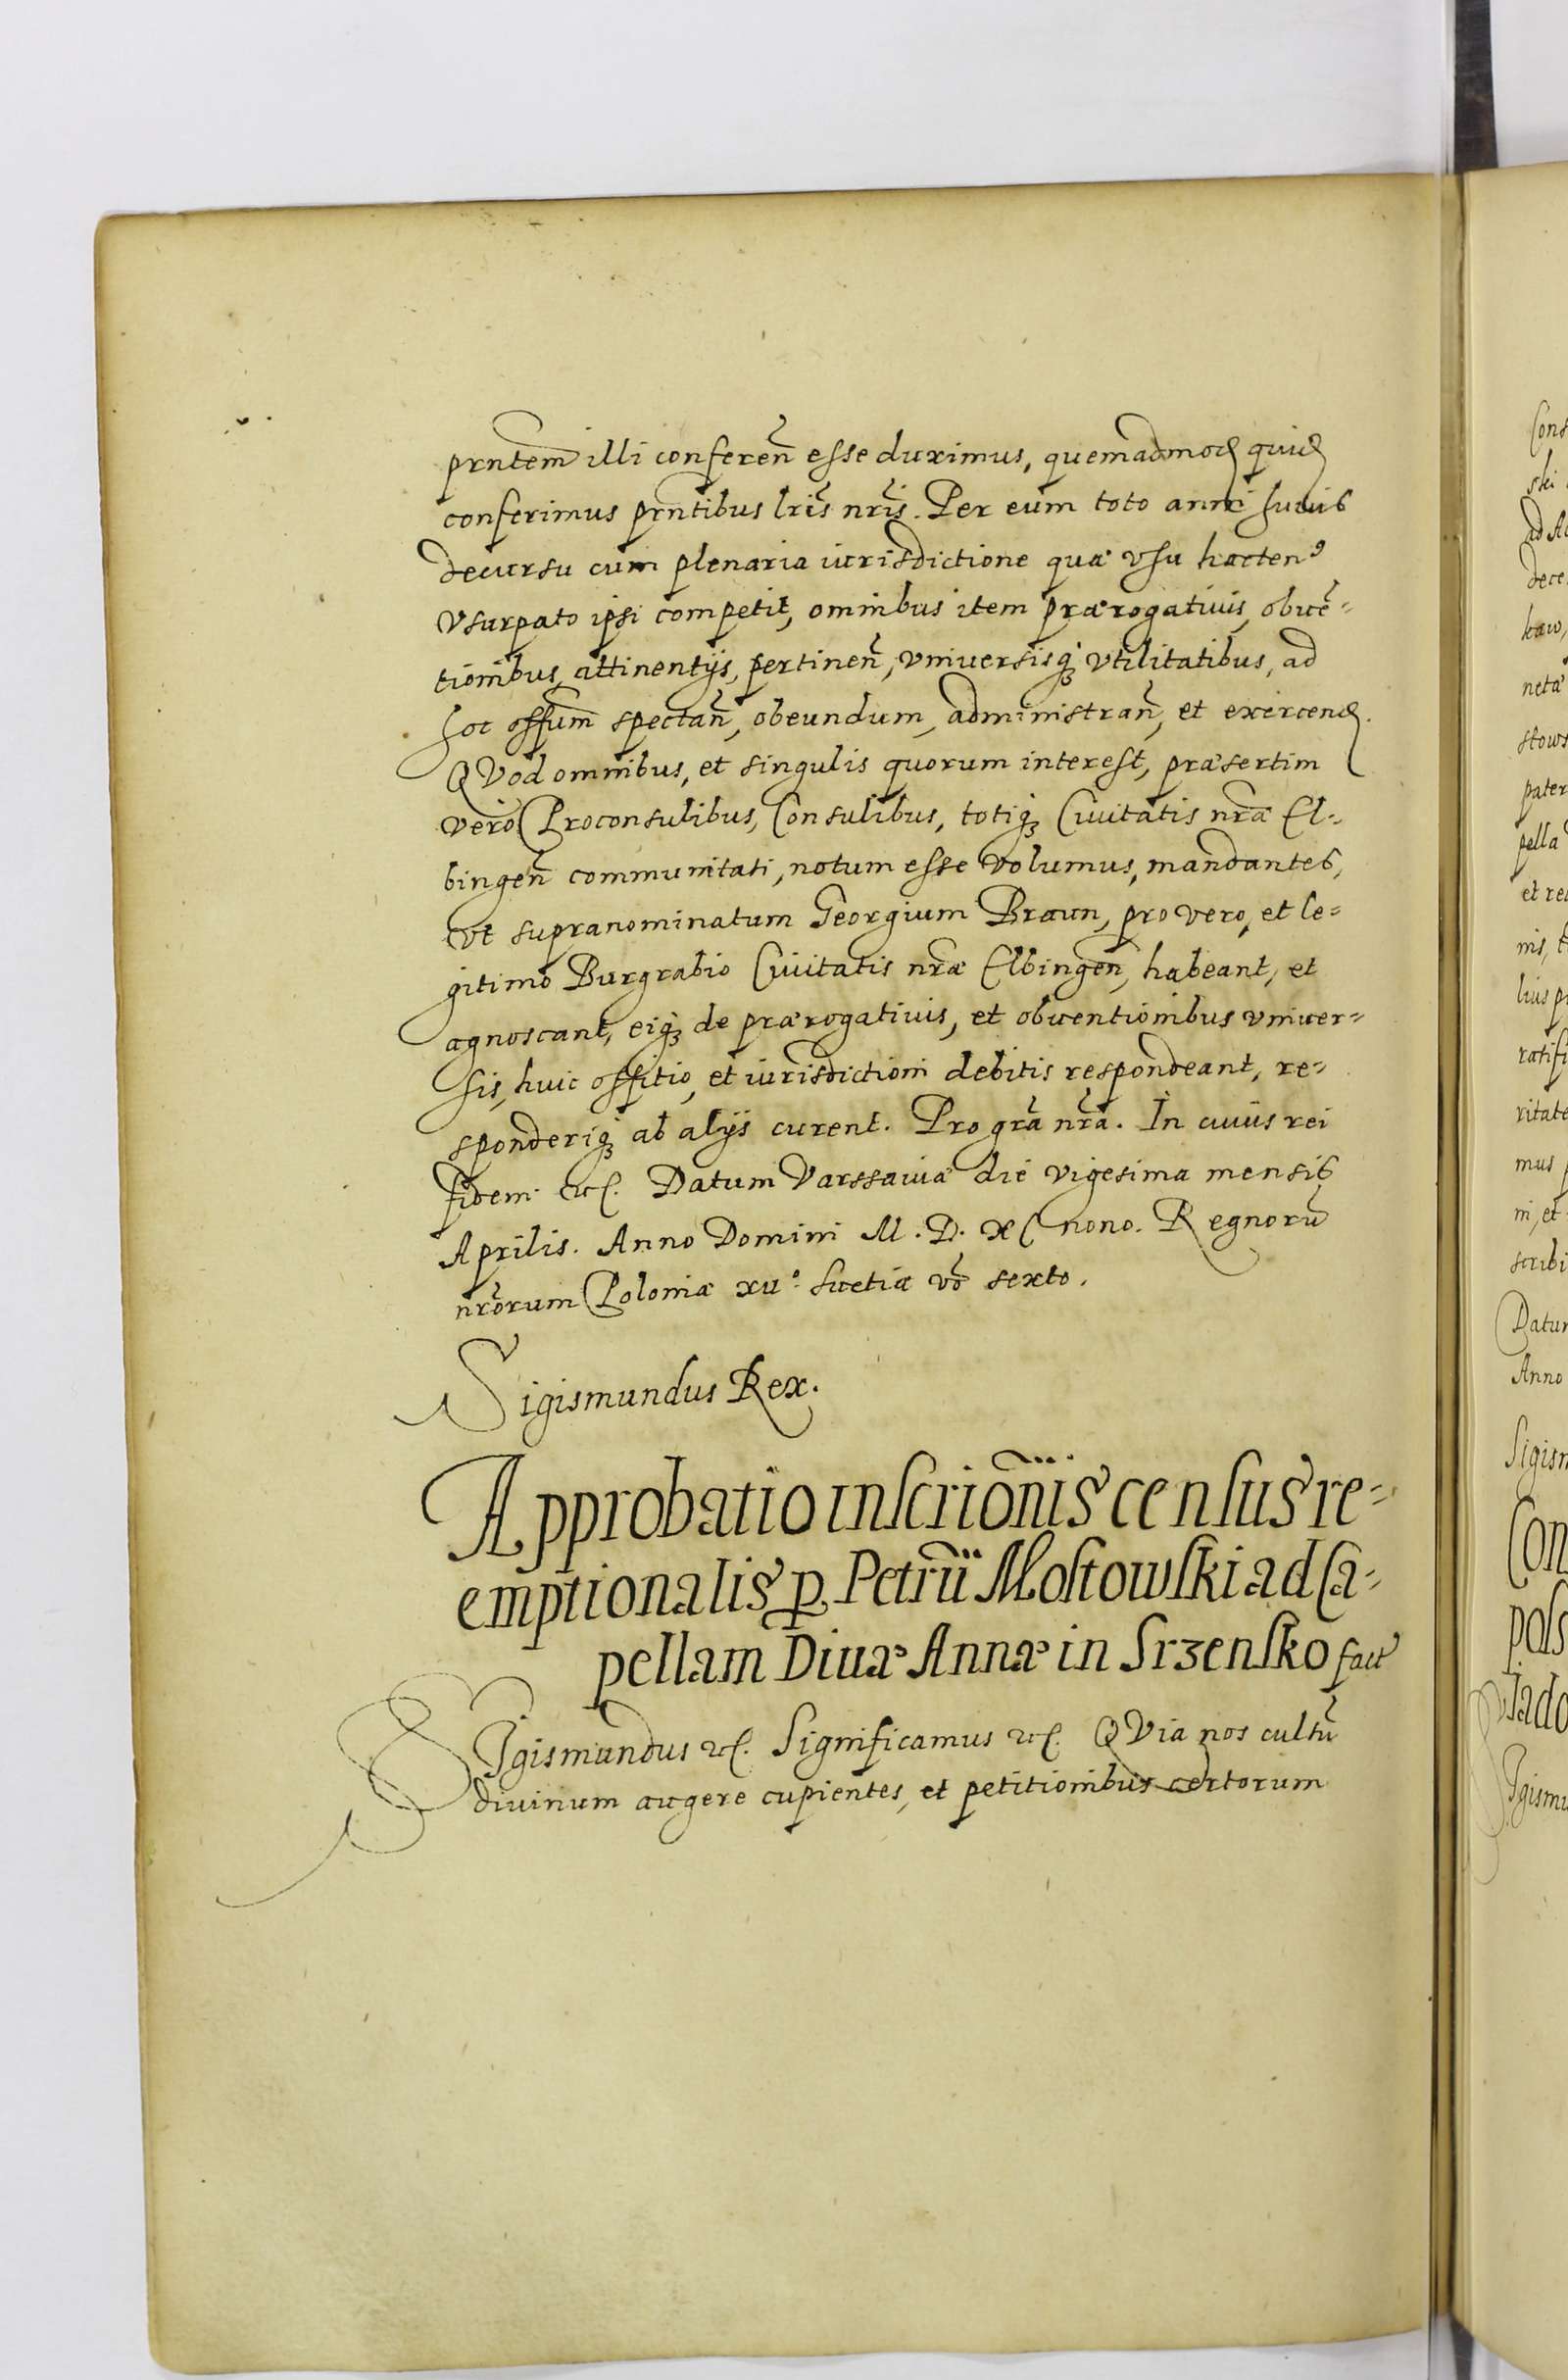 prntem illi conferen̄ esse duximus, quemadmod quid
conferimus prntibus lris nris. Per eum toto anni huius
decursu cum plenaria iurisdictione quæ vsu hacten⁹
vsurpato ipsi competit, omnibus item prærogatiuis, obuē=
tionibus, attinentijs, pertinen̄, vniuersisq̨ vtilitatibus, ad
hoc offum spectan̄, obeundum, administran̄, et exercend.
QVod omnibus, et singulis quorum interest, præsertim
vero Proconsulibus, Consulibus, totiq̨ Ciuitatis nræ El=
bingen̄ communitati, notum esse volumus, mandantes,
vt supranominatum Georgium Braun, pro vero, et le=
gitimo Burgrabio Ciuitatis nræ Elbingen̄, habeant, et
agnoscant, eiq̨ de prærogatiuis, et obuentionibus vniuer=
sis, huic offitio, et iurisdictioni debitis respondeant, re=
sponderiq̨ ab alijs curent. Pro gra nra. In cuius rei
fidem etc. Datum Varssauiæ die vigesima mensis
Aprilis. Anno Domini M.D.XC nono. Regnorū
nrorum Poloniæ xii⁰ Suetiæ vō sexto.
Sigismundus Rex.
Approbatio inscrionis census re=
emptionalis ꝑ Petrū Mostowski ad Ca=
pellam Diuæ Annæ in Srzensko fact
SIgismundus etc. Significamus etc. QVia nos cultū
diuinum augere cupientes, et petitionibus certorum
Cons
ski
dece
neta
stows
pater
pella
nis,
ratifi
ritate
mus
ni, et
scribi
Datum
Anno
Sigism
Con
pols
Iado